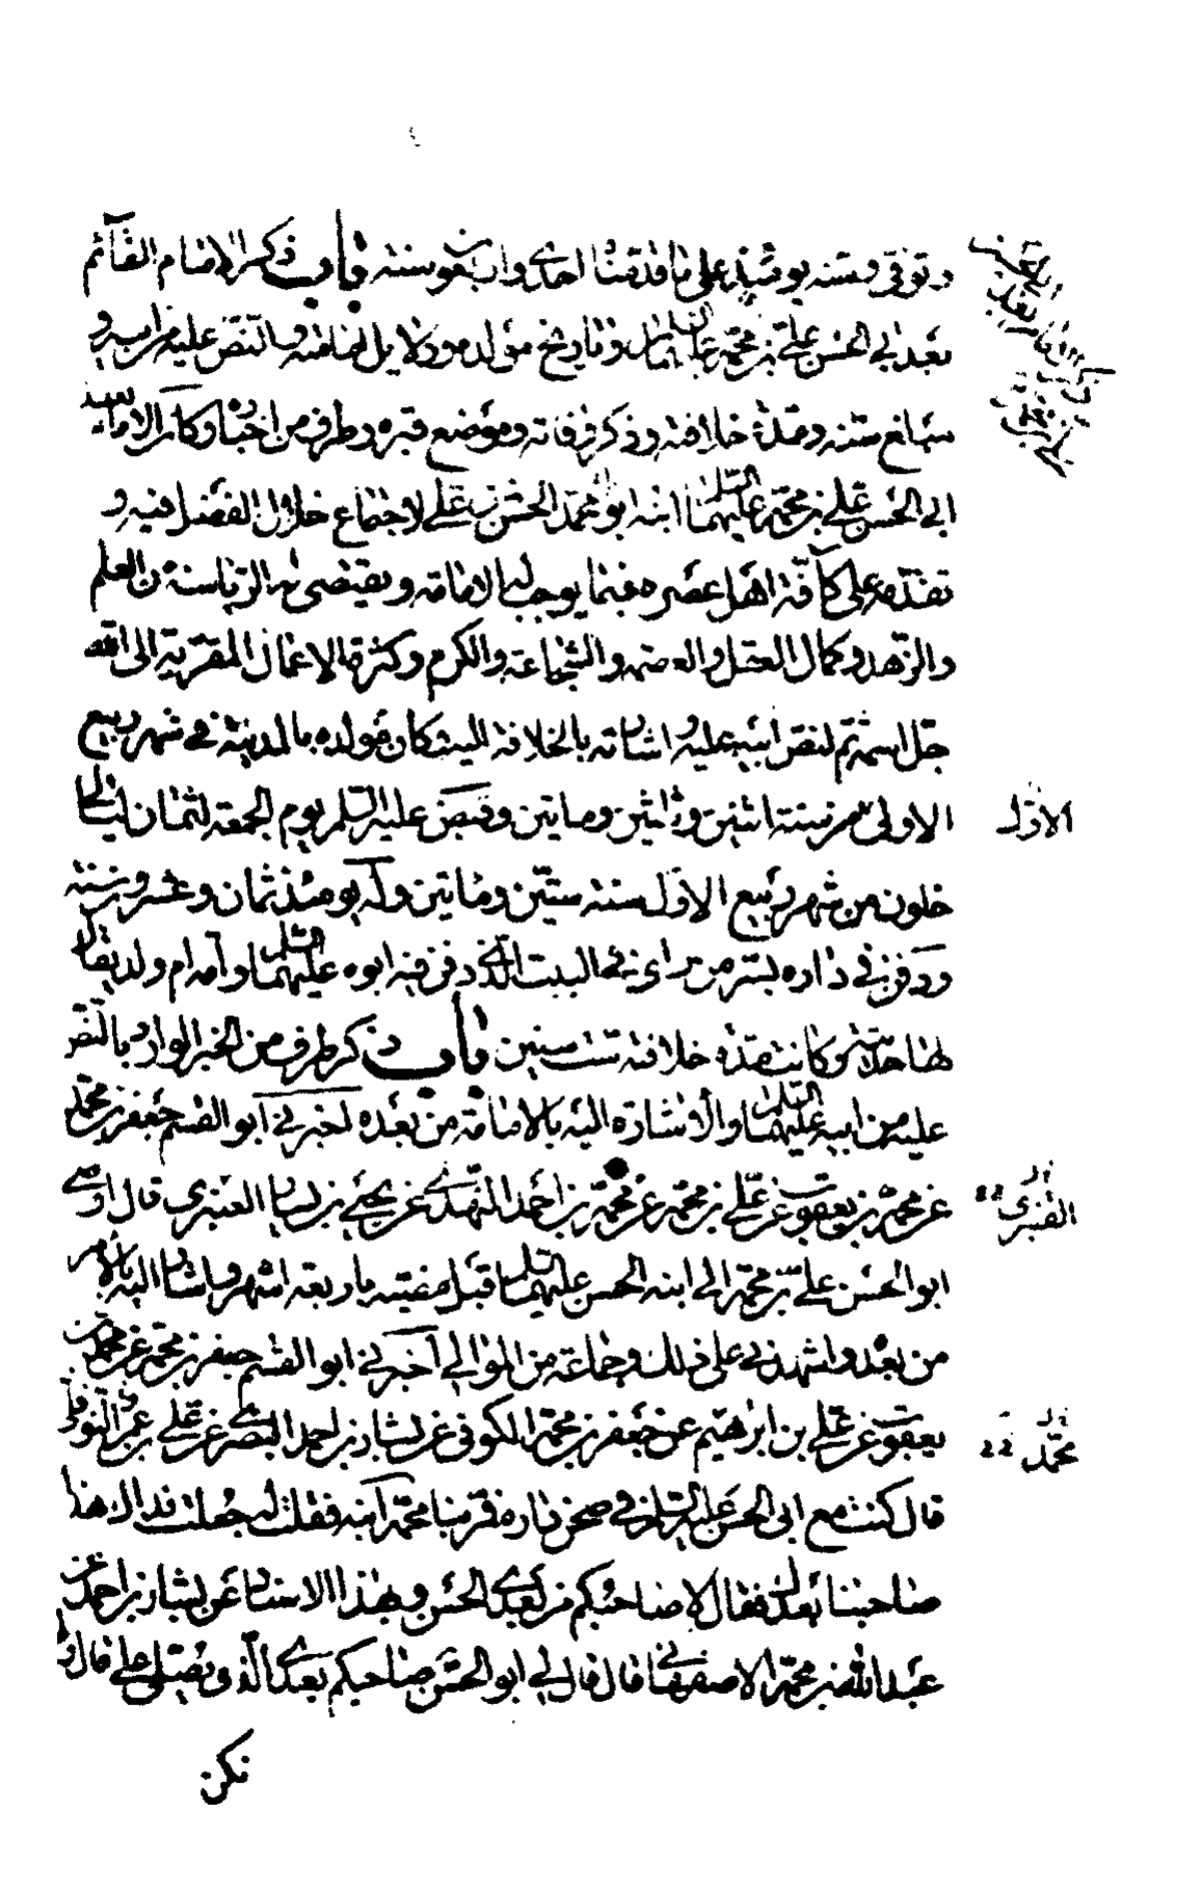 وتوفي وسنه يومئذ على ما قدمنا احدى واربعون سنة باب ذكر الامام القائم
بعد ابي الحسن علي بن محمد عليهما السلام وتاريخ مولده ودلايل امامته والنص عليه من ابيه و
مبلغ سنه ومدة خلافته وذكر وفاته وموضع قبره وطرف من اخباره وكان الامام بعد
ابي الحسن علي بن محمد عليهما السلام ابنه ابو محمد الحسن بن علي لاجتماع خلال الفضل فيه و
تقدمه على كافة اهل عصره فيما يوجب له الامامة ويقتضى له الرياسة من العلم
والزهد وكمال العقل والعصمة والشجاعة والكرم وكثرة الاعمال المقربة الى الله
جل اسمه ثم لنص ابيه عليه واشارته بالخلافة اليه وكان مولده بالمدينة في شهر ربيع
الاولى من سنة اثنين وثلثين وماتين وقبض عليه السلم يوم الجمعة لثمان ليال
الاول
خلون من شهر ربيع الاول سنة ستين وماتين وله يومئذ ثمان وعشرون سنة
ودفن في داره بسر من راى في البيت الذي دفن فيه ابوه عليهما السلم وامه ام ولد يقال
لها حديث وكانت مدة خلافته ست سنين باب ذكر طرف من الخبر الوارد بالنص
عليه من ابيه عليهما السلم والاشارة اليه بالامامة من بعده اخبرني ابو القسم جعفر بن محمد
عن محمد بن يعقوب عن علي بن محمد عن محمد بن احمد النهدي عن يحيى بن يسار العنبري قال اوصى
القنبري
ابو الحسن علي بن محمد الى ابنه الحسن عليهما السلم قبل مضيه باربعة اشهر واشار اليه بالامر
من بعده واشهدني على ذلك وجماعة من الموالي اخبرني ابو القسم جعفر بن محمد عن محمد بن
يعقوب عن علي بن ابرهيم عن جعفر بن محمد الكوفي عن بشار بن احمد البصري عن علي بن عمر النوفلي
محمد
قال كنت مع ابى الحسن عليه السلم في صحن داره فمر بنا محمد ابنه فقلت له جعلت فداك هذا
صاحبنا بعدك فقال لا صاحبكم من بعدي الحسن وبهذا الاسناد عن بشار بن احمد عن
عبد الله بن محمد الاصفهاني قال قال لي ابو الحسن صاحبكم بعدي الذي يصلي علي قال و
نكن